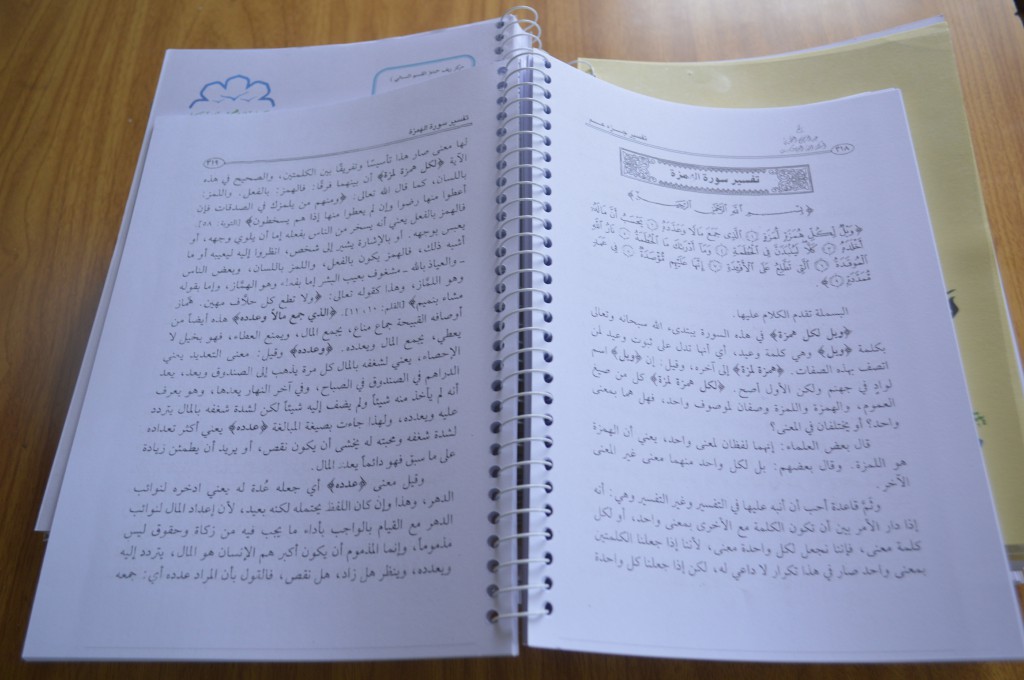 ٣١٨
تفسير جزء عم
تفسير سورة الهمزة
﴿بسم الله الرحمن الرحيم﴾
﴿وَيْلٌ لِّكُلِّ هُمَزَةٍ لُّمَزَةٍ ١ الَّذِي جَمَعَ مَالًا وَعَدَّدَهُ ٢ يَحْسَبُ أَنَّ مَالَهُ
أَخْلَدَهُ ٣ كَلَّا لَيُنبَذَنَّ فِي الْحُطَمَةِ ٤ وَمَا أَدْرَاكَ مَا الْحُطَمَةُ ٥ نَارُ اللَّهِ
الْمُوقَدَةُ ٦ الَّتِي تَطَّلِعُ عَلَى الْأَفْئِدَةِ ٧ إِنَّهَا عَلَيْهِم مُّؤْصَدَةٌ ٨ فِي عَمَدٍ
مُّمَدَّدَةٍ ٩﴾
البسملة تقدم الكلام عليها.
﴿ويل لكل همزة﴾ في هذه السورة يبتدىء الله سبحانه وتعالى
بكلمة ﴿ويل﴾ وهي كلمة وعيد، أي أنها تدل على ثبوت وعيد لمن
اتصف بهذه الصفات. ﴿همزة لمزة﴾ إلى آخره، وقيل: إن ﴿ويل﴾ اسم
لوادٍ في جهنم ولكن الأول أصح. ﴿لكل همزة لمزة﴾ كل من صيغ
العموم، والهمزة واللمزة وصفان لموصوف واحد، فهل هما بمعنى
واحد؟ أو يختلفان في المعنى؟
قال بعض العلماء: إنهما لفظان لمعنى واحد، يعني أن الهمزة
هو اللمزة. وقال بعضهم: بل لكل واحد منهما معنى غير المعنى
الآخر.
وثمَّ قاعدة أحب أن أنبه عليها في التفسير وغير التفسير وهي: أنه
إذا دار الأمر بين أن تكون الكلمة مع الأخرى بمعنى واحد، أو لكل
كلمة معنى، فإننا نجعل لكل واحدة معنى، لأننا إذا جعلنا الكلمتين
بمعنى واحد صار في هذا تكرار لا داعي له، لكن إذا جعلنا كل واحدة
تفسير سورة الهمزة
٣١٩
لها معنى صار هذا تأسيسًا وتفريقًا بين الكلمتين، والصحيح في هذه
الآية ﴿لكل همزة لمزة﴾ أن بينهما فرقًا: فالهمز: بالفعل. واللمز:
باللسان، كما قال الله تعالى: ﴿ومنهم من يلمزك في الصدقات فإن
أعطوا منها رضوا وإن لم يعطوا منها إذا هم يسخطون﴾ [التوبة: ٥٨].
فالهمز بالفعل يعني أنه يسخر من الناس بفعله إما أن يلوي وجهه، أو
يعبس بوجهه. أو بالإشارة يشير إلى شخص، انظروا إليه ليعيبه أو ما
أشبه ذلك، فالهمز يكون بالفعل، واللمز باللسان، وبعض الناس
ـ والعياذ بالله ـ مشغوف بعيب البشر إما بفعله، وهو الهمَّاز، وإما بقوله
وهو اللمَّاز، وهذا كقوله تعالى: ﴿ولا تطع كل حلاف مهين. هماز
مشاء بنميم﴾ [القلم: ١٠، ١١]. ﴿الذي جمع مالاً وعدده﴾ هذه أيضاً من
أوصافه القبيحة جماع مناع، يجمع المال، ويمنع العطاء، فهو بخيل لا
يعطي، يجمع المال ويعدده. ﴿وعدده﴾ وقيل: معنى التعديد يعني
الإحصاء، يعني لشغفه بالمال كل مرة يذهب إلى الصندوق ويعد، يعد
الدراهم في الصندوق في الصباح، وفي آخر النهار يعدها، وهو يعرف
أنه لم يأخذ منه شيئاً ولم يضف إليه شيئاً لكن لشدة شغفه بالمال يتردد
عليه ويعدده، ولهذا جاءت بصيغة المبالغة ﴿عدده﴾ يعني أكثر تعداده
لشدة شغفه ومحبته له يخشى أن يكون نقص، أو يريد أن يطمئن زيادة
على ما سبق فهو دائماً يعدد المال.
وقيل معنى ﴿عدده﴾ أي جعله عُدة له يعني ادخره لنوائب
الدهر، وهذا وإن كان اللفظ يحتمله لكنه بعيد، لأن إعداد المال لنوائب
الدهر مع القيام بالواجب بأداء ما يجب فيه من زكاة وحقوق ليس
مذموماً، وإنما المذموم أن يكون أكبر هم الإنسان هو المال، يتردد إليه
ويعدده، وينظر هل زاد، هل نقص، فالقول بأن المراد عدده أي: جمعه